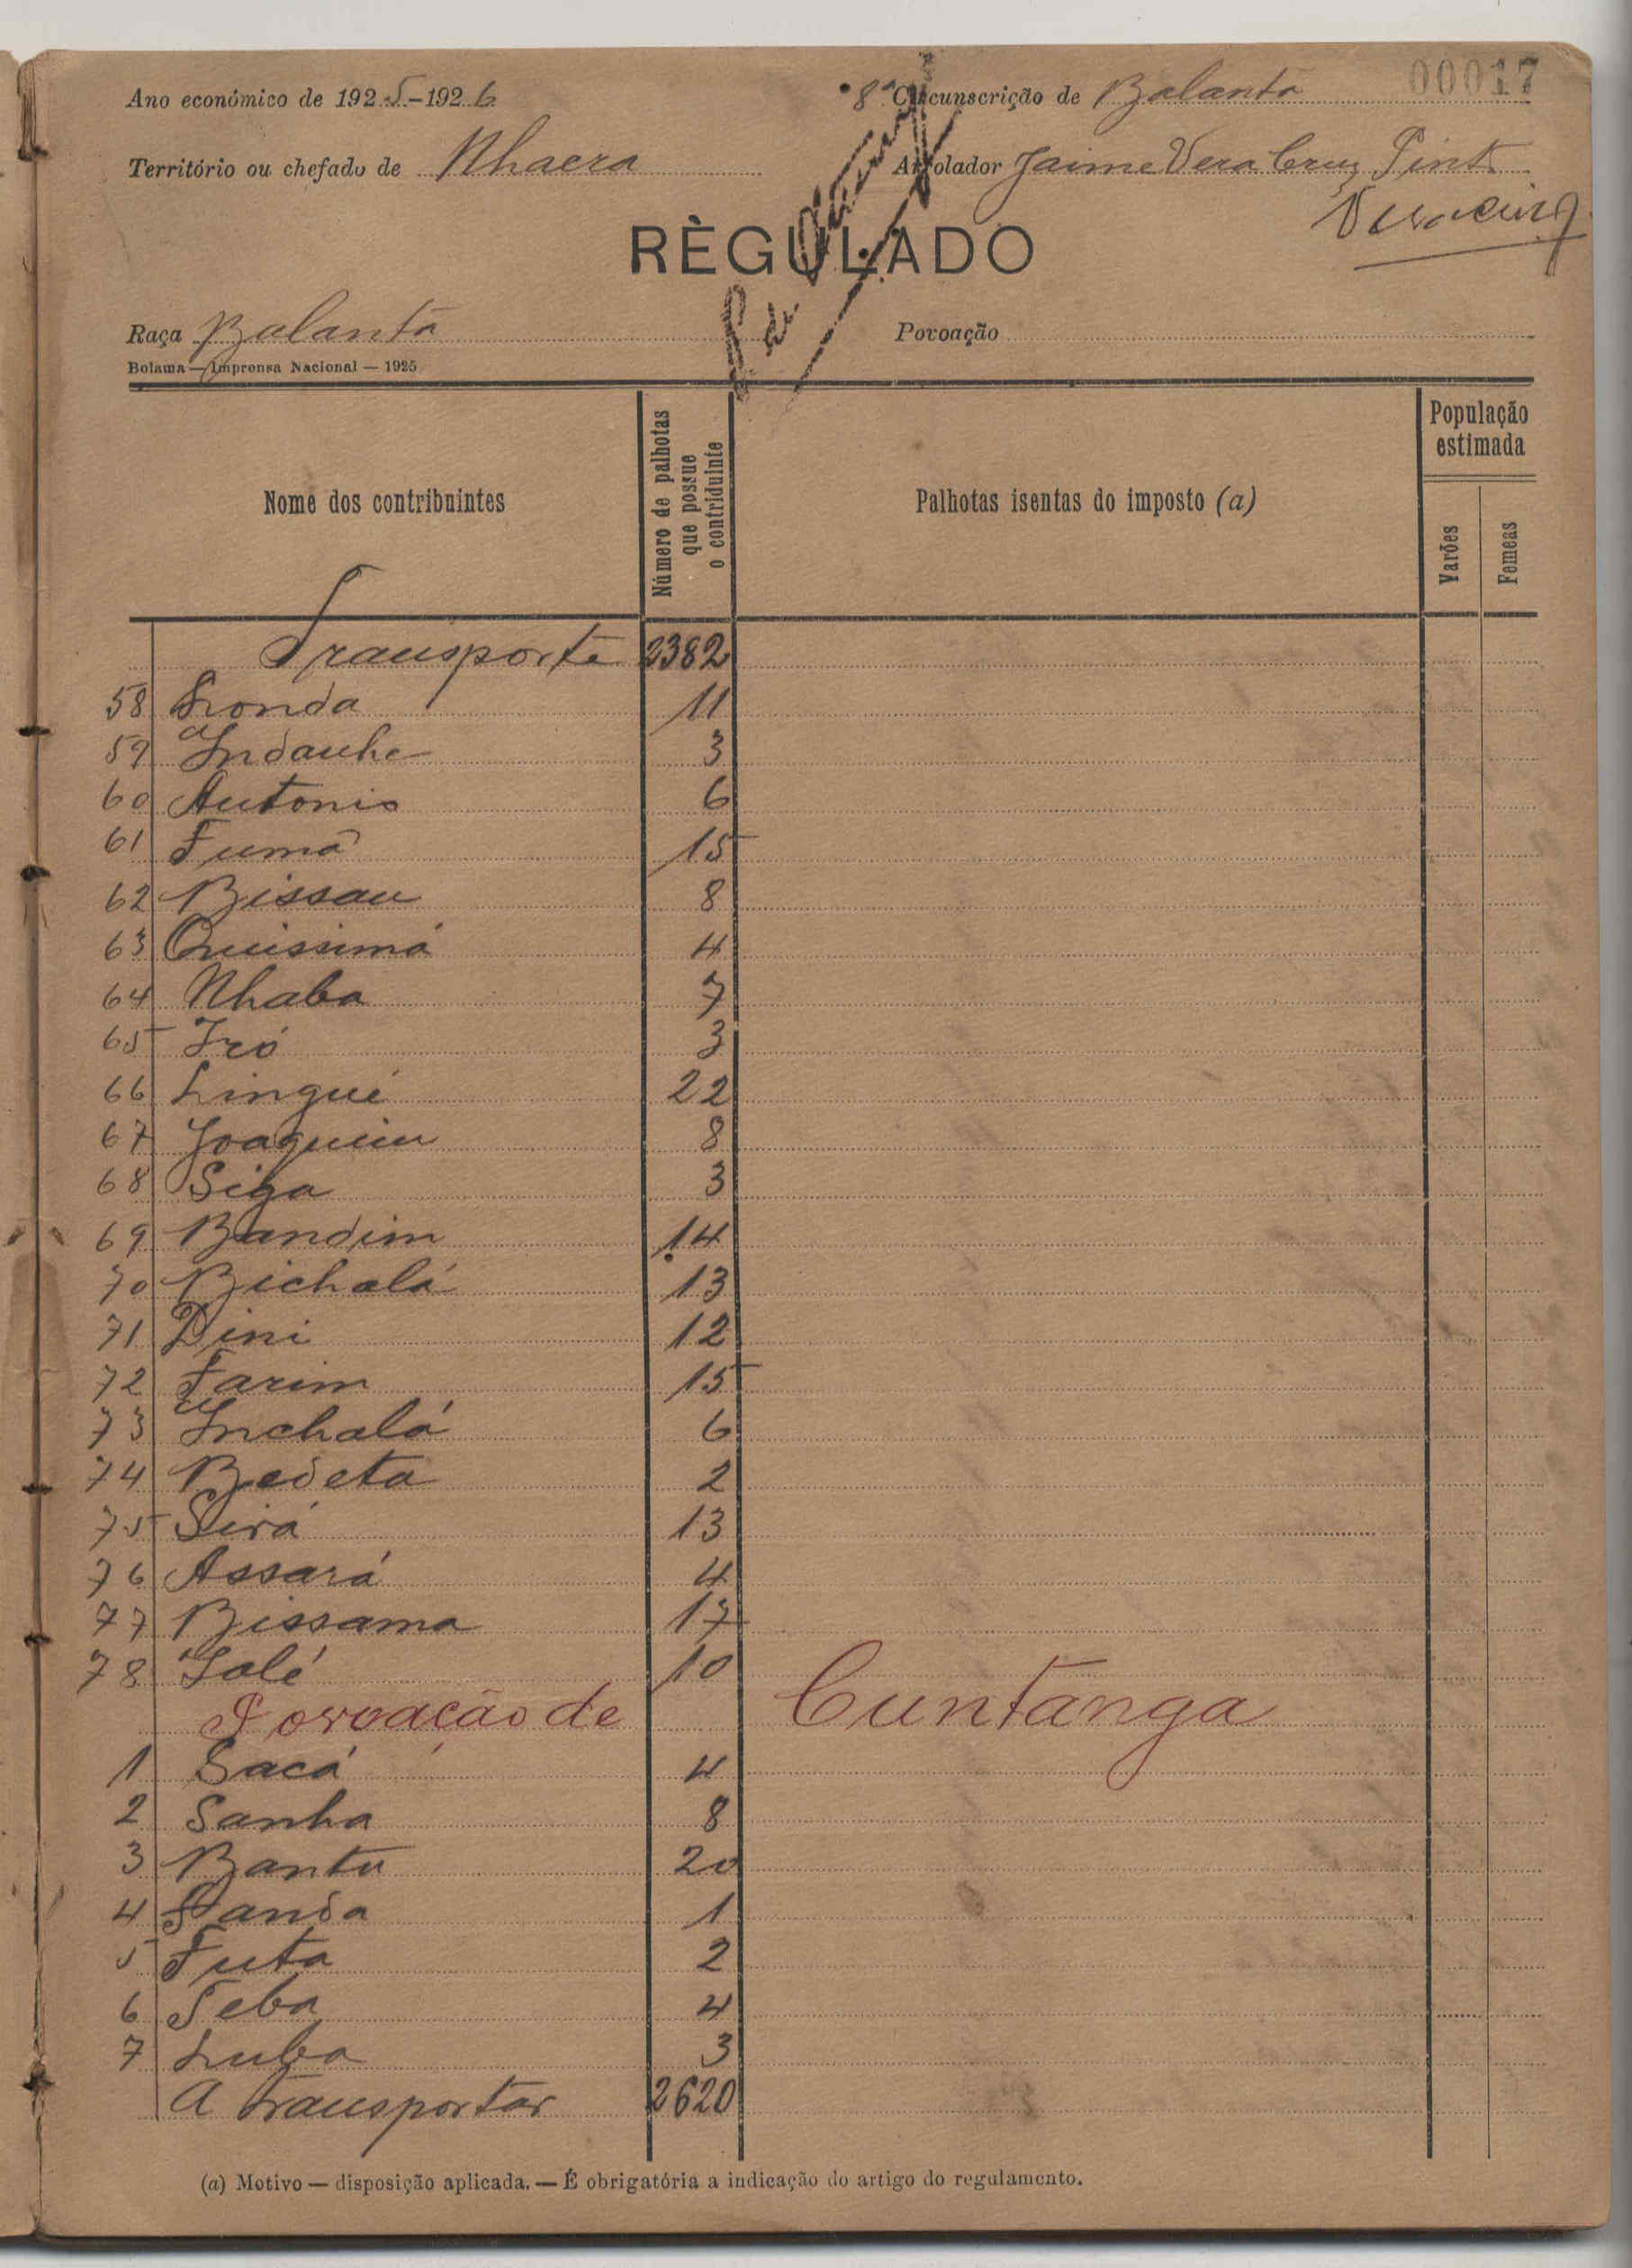 00017
Ano económico de 1925-1926 8ª Circunscrição de Balanta
Território ou chefado de Nhaera Arrolador Jaime Vera Cruz Pinto
RÈGULADO
Raça Balanta Povoação
Bolama — Imprensa Nacional — 1925
Nome dos contribuintes
Número de palhotas
que possue
o contriduinte
Palhotas isentas do imposto (a)
População
estimada
Varões
Femeas
Transporte 2382
58 Londa 11
59 Indauhe 3
60 Antonio 6
61 Fumã 15
62 Bissau 8
63 Quissimá 4
64 Nhaba 7
65 Iró 3
66 Lingué 22
67 Joaquim 8
68 Siga 3
69 Bandim 14
70 Bichalá 13
71 Dini 12
72 Farim 15
73 Inchalá 6
74 Bedeta 2
75 Sirá 13
76 Assará 4
77 Bissama 17
78 Salé 10
Povoação de Cuntanga
1 Sacá 4
2 Sanha 8
3 Bantu 20
4 Panda 1
5 Futa 2
6 Seba 4
7 Luba 3
A transportar 2620
(a) Motivo — disposição aplicada. — É obrigatória a indicação do artigo do regulamento.